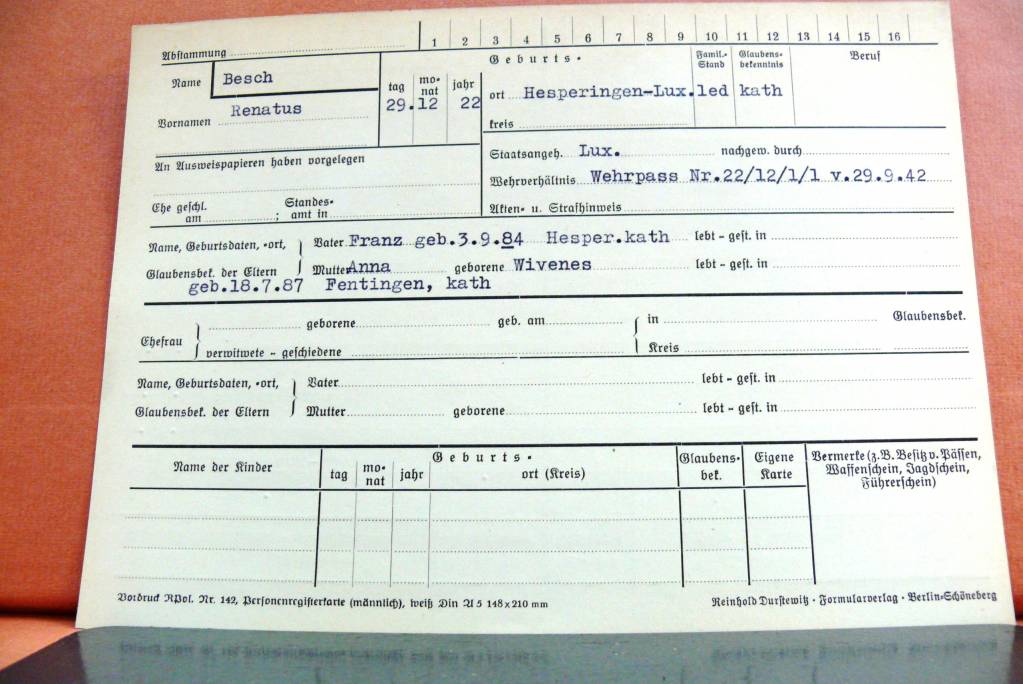 Abstammung 1 2 3 4 5 6 7 8 9 10 11 12 13 14 15 16
Name Besch
Vornamen Renatus
Geburts-
tag monat jahr
29.12 22
ort Hesperingen-Lux.
kreis
Famil.-Stand
led
Glaubensbekenntnis
kath
Beruf
An Ausweispapieren haben vorgelegen
Staatsangeh. Lux. nachgew. durch
Wehrverhältnis Wehrpass Nr.22/12/1/1 v.29.9.42
Ehe geschl. am ; Standesamt in
Akten- u. Strafhinweis
Name, Geburtsdaten, -ort, Vater Franz geb.3.9.84 Hesper.kath lebt - gest. in
Glaubensbek. der Eltern Mutter Anna geborene Wivenes lebt - gest. in
geb.18.7.87 Fentingen, kath
Ehefrau geborene geb. am in Glaubensbek.
verwitwete - geschiedene Kreis
Name, Geburtsdaten, -ort, Vater lebt - gest. in
Glaubensbek. der Eltern Mutter geborene lebt - gest. in
Name der Kinder
Geburts-
tag monat jahr ort (Kreis)
Glaubensbek.
Eigene Karte
Vermerke (z.B. Besitz v. Pässen,
Waffenschein, Jagdschein,
Führerschein)
Vordruck RPol. Nr. 142, Personenregisterkarte (männlich), weiß Din A 5 148 x 210 mm
Reinhold Durstewitz · Formularverlag · Berlin-Schöneberg